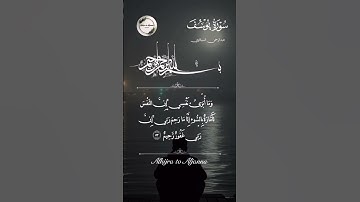 سُورَةُ يُوسُفَ
بِسْمِ اللَّهِ الرَّحْمَٰنِ الرَّحِيمِ
وَمَا أُبَرِّئُ نَفْسِي إِنَّ النَّفْسَ
لَأَمَّارَةٌ بِالسُّوءِ إِلَّا مَا رَحِمَ رَبِّي إِنَّ
رَبِّي غَفُورٌ رَحِيمٌ ﴿٥٣﴾
Alhijra to Aljanna